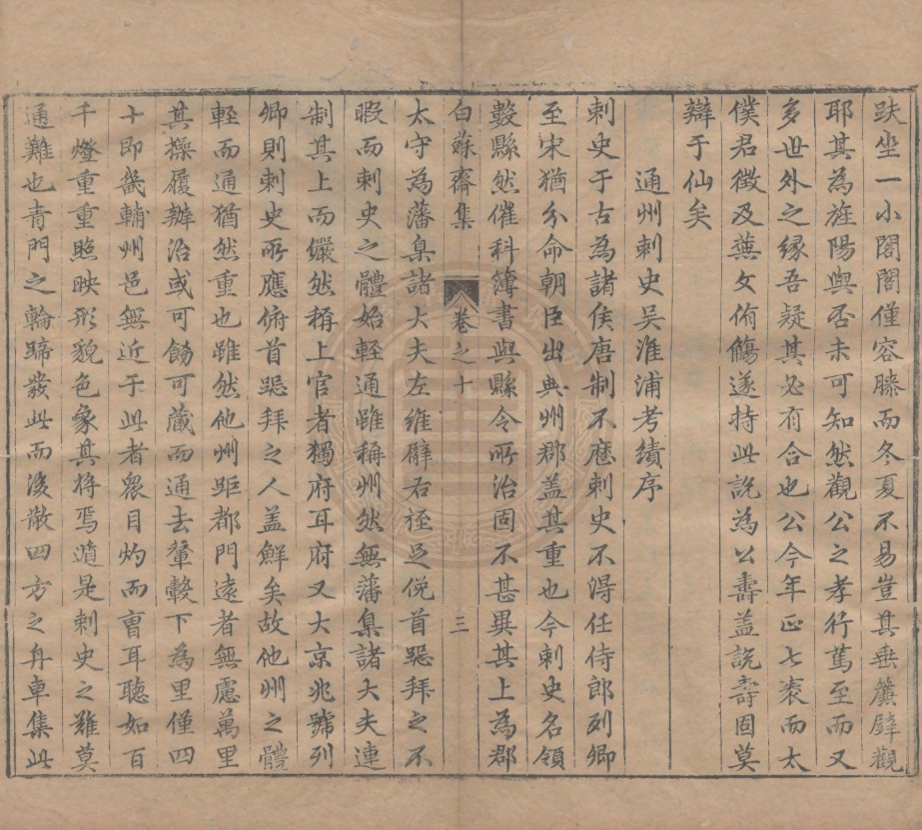 趺坐一小閣閣僅容膝而冬夏不易豈其垂簾壁觀
耶其為旌陽與否未可知然觀公之孝行篤至而又
多世外之緣吾疑其必有合也公今年正七袠而太
僕君徵及蕪文侑觴遂持此說為公壽蓋說壽固莫
辯于仙矣
通州刺史吳淮浦考績序
刺史于古為諸侯唐制不應刺史不得任侍郎列卿
至宋猶分命朝臣出典州郡蓋其重也今刺史名領
數縣然催科簿書與縣令所治固不甚異其上為郡
白蘇齋集 卷之十 三
太守為藩臬諸大夫左維辟右桎足俛首跽拜之不
暇而刺史之體始輕通雖稱州然無藩臬諸大夫連
制其上而儼然稱上官者獨府耳府又大京兆號列
卿則刺史所應俯首跽拜之人蓋鮮矣故他州之體
輕而通猶然重也雖然他州距都門遠者無慮萬里
其操履辦治或可飾可藏而通去輦轂下為里僅四
十即畿輔州邑無近于此者眾目灼而亶耳聽如百
千燈重重照映形貌色象其將焉遁是刺史之難莫
通難也青門之輪蹄發此而後散四方之舟車集此